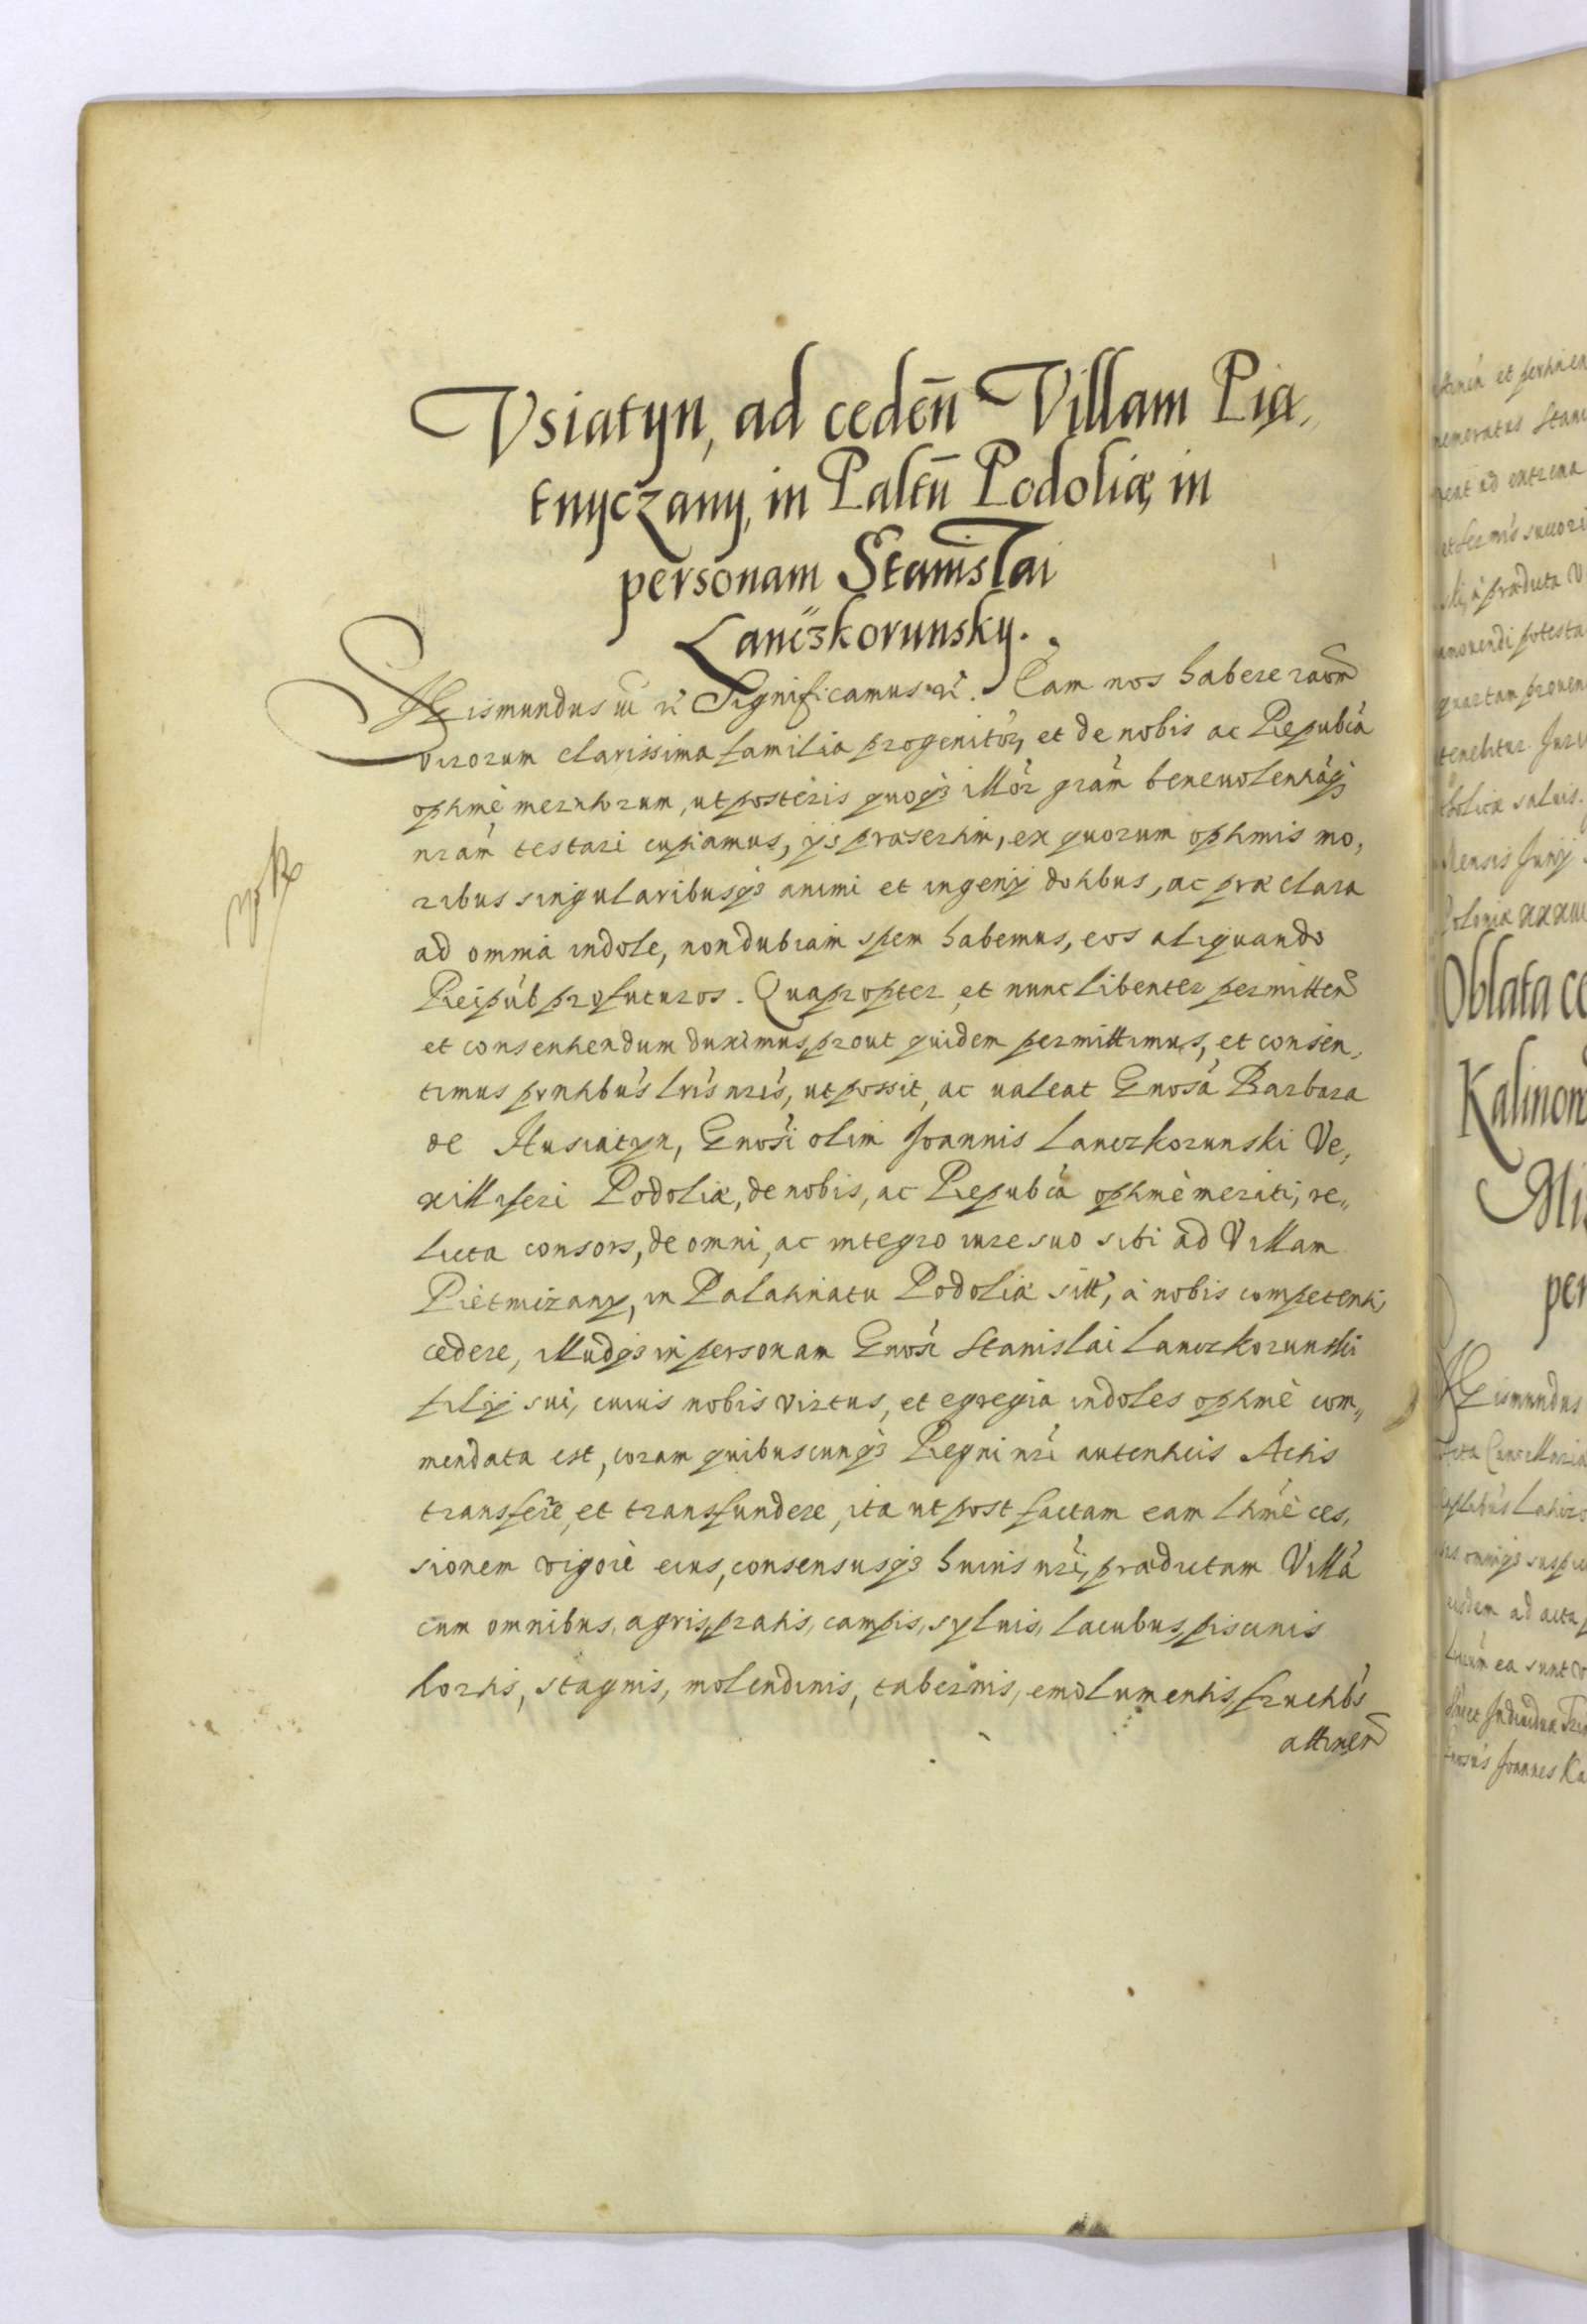 Vsiatyn, ad cedeñ Villam Pia,
tnyczany, in Paltū Podoliæ, in
personam Stanislai
Lanczkorunsky.
Sigismundus iii &c Significamus &c. Eam nos habere raōm
virorum clarissima familia progenitor, et de nobis ac Repubca
optimè meritorum, ut posteris quoqз illor gram beneuolentiaqз
nram testari cupiamus, ijs præsertim, ex quorum optimis mo,
ribus singularibusqз animi et ingenij dotibus, ac præclara
ad omnia indole, non dubiam spem habemus, eos aliquando
Reipub profuturos. Quapropter et nunc libenter permitten
et consentiendum duximus, prout quidem permittimus, et consen,
timus pntibus lris nris, ut possit, ac ualeat Gnosa Barbara
de Husiatyn, Gnosi olim Joannis Lanczkorunski Ve,
xilliferi Podoliæ, de nobis, ac Repubca optimè meriti, re,,
licta consors, de omni, ac integro iure suo sibi ad Villam
Pietnizany, in Palatinatu Podoliæ sitt, à nobis competenti,
cedere, illudqз in personam Gnosi Stanislai Lanczkorunski
filij sui, cuius nobis virtus, et egregia indoles optimè com,,
mendata est, coram quibuscunqз Regni nri autenticis Actis
transfere, et transfundere, ita ut post factam eam ltimè ces,
sionem vigore eius, consensusqз huius nri, prædictam Villa
cum omnibus, agris, pratis, campis, syluis, lacubus, piscinis
hortis, stagnis, molendinis, tabernis, emolumentis, fructibs
attinen
Oblata ce
Kalinow
Mi
per